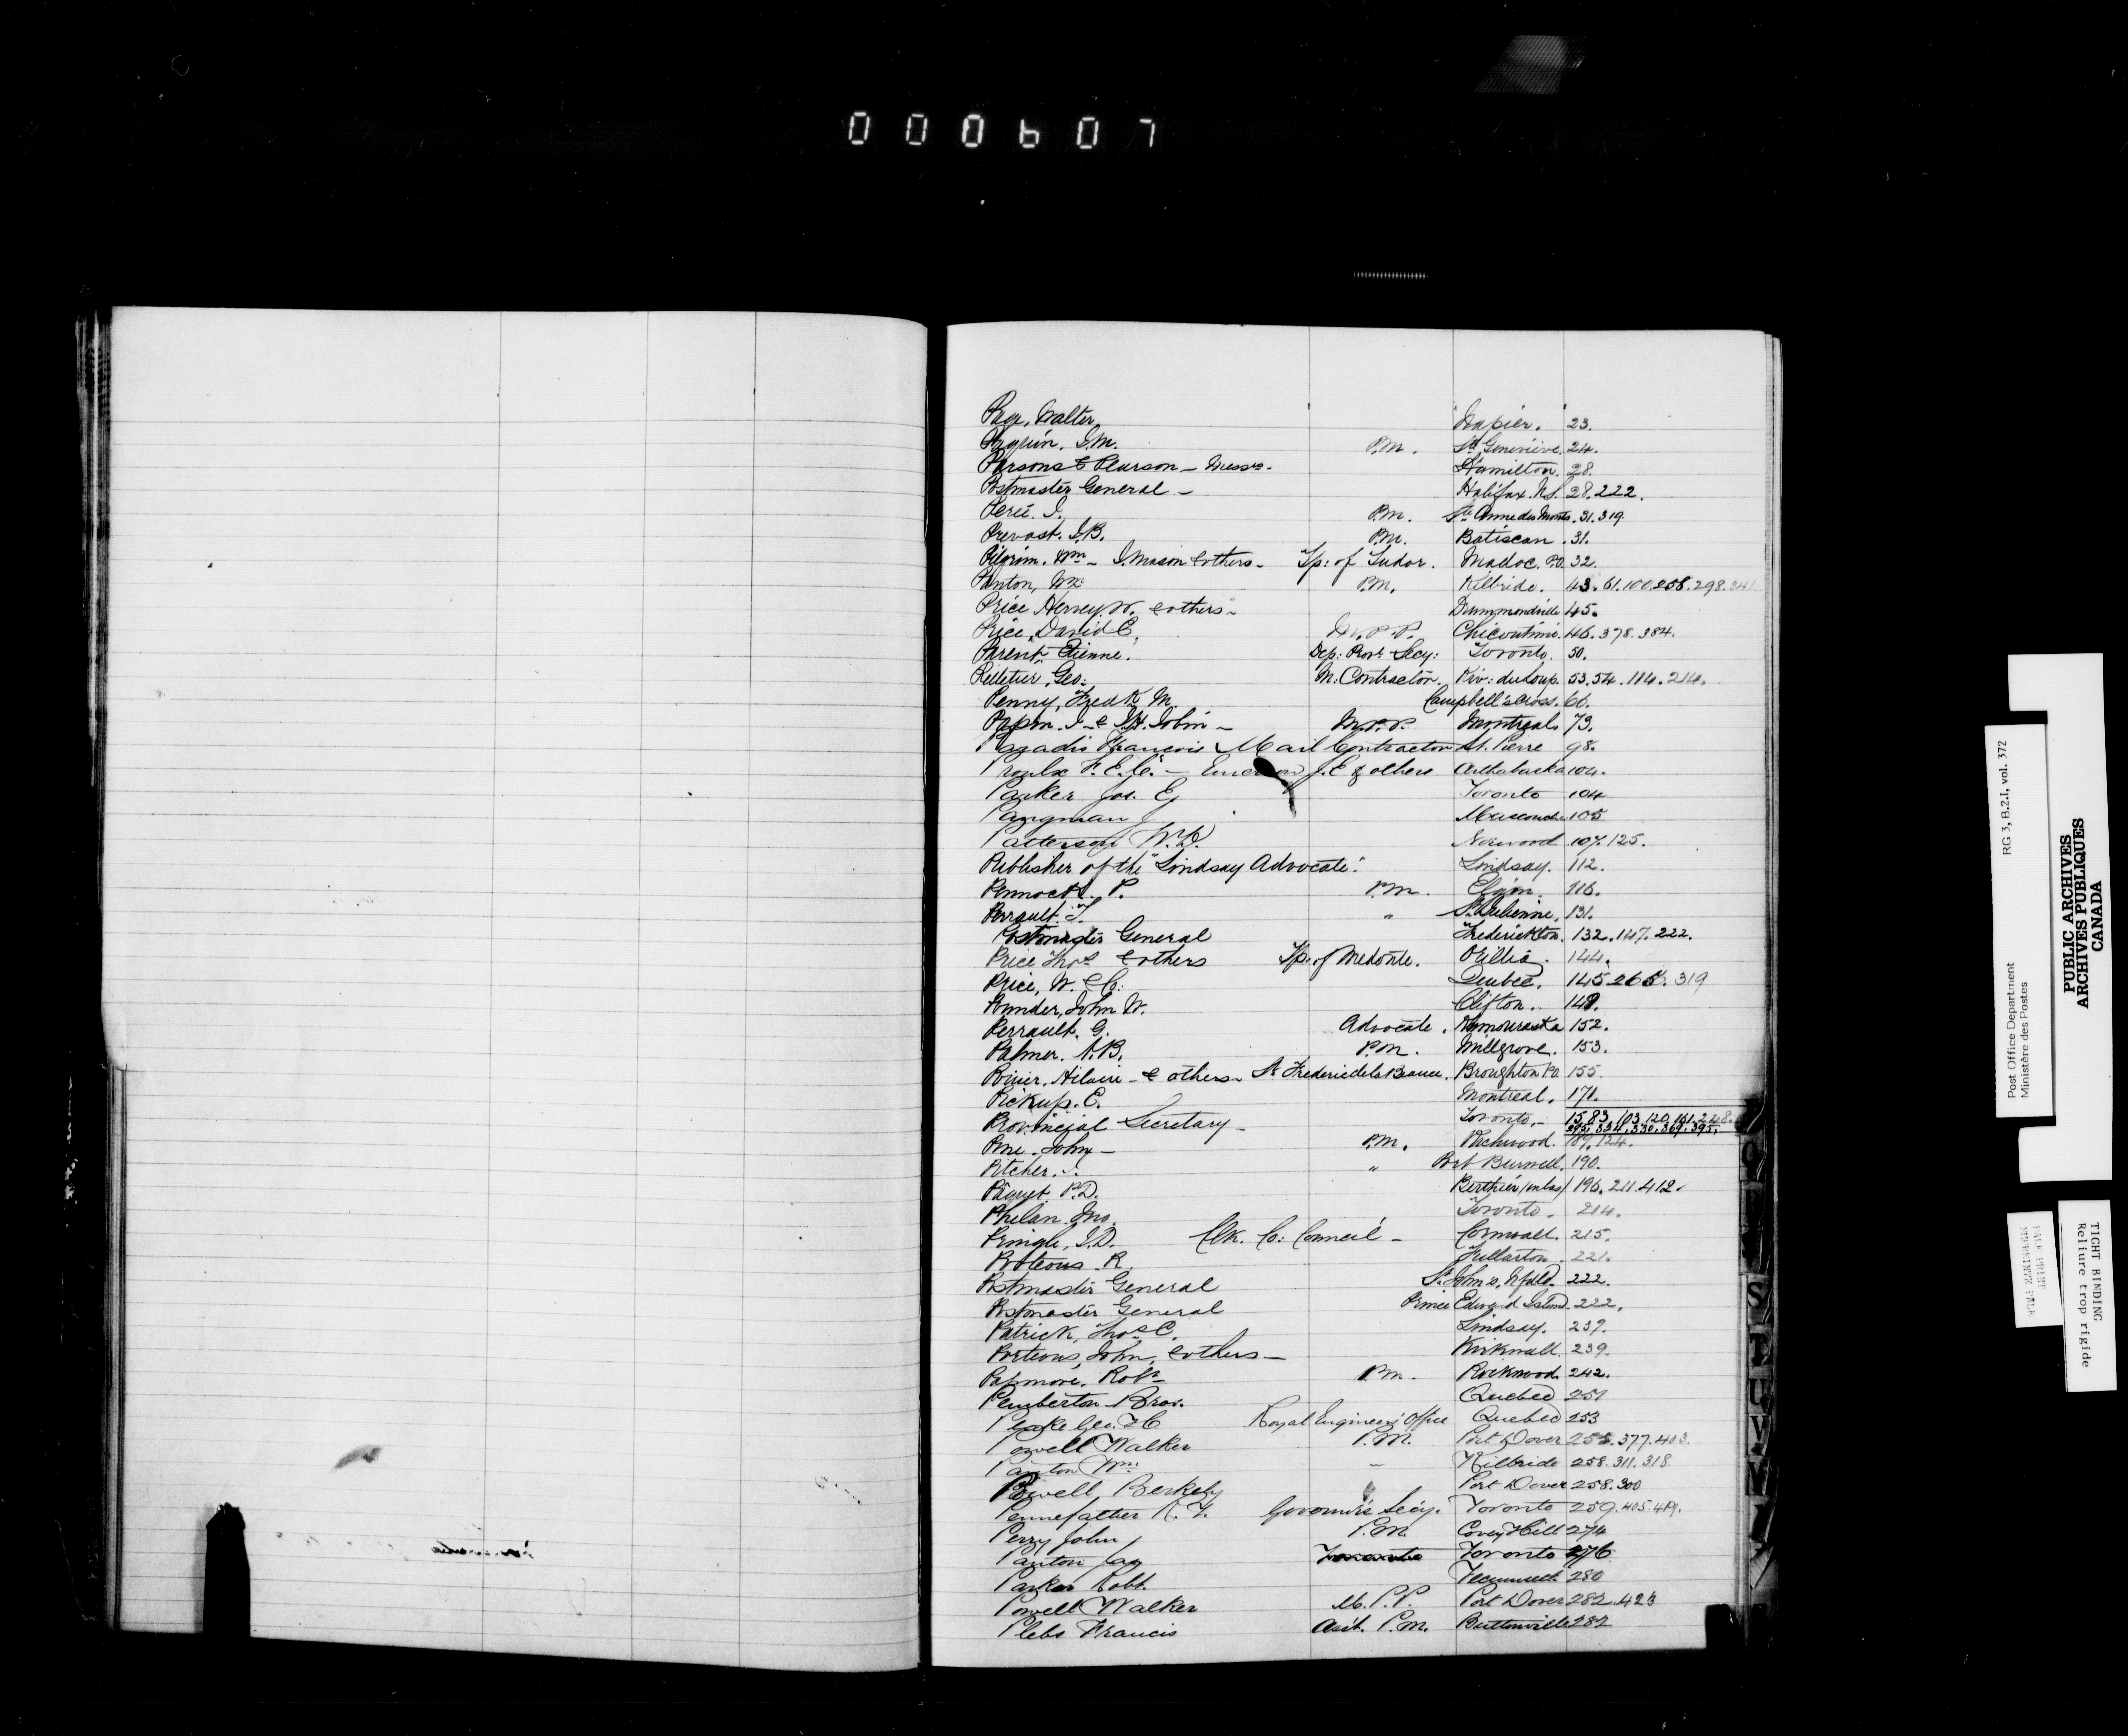 000607
Page, Walter Napier. 23.
P.M. Ste Geneviève. 24.
Parsons & Pearson - Messrs. Hamilton. 28.
Postmaster General - Halifax. N.S. 28.222.
P.M. Ste Anne des Monts. 31.319
Prevost. J.B. P.M. Batiscan. 31.
Pilgrim. Wm - J. Mason & others - Tp: of Tudor. Madoc. P.O. 32.
Panton, Wm P.M. Kilbride. 43.61.100.258.298.341
Price Hervey. W. & others - Drummondville 45.
Price, David E. M.P.P. Chicoutimi. 46.378.384.
Parent, Etienne. Dep: Provl Secy: Toronto. 50.
Pelletier, Geo: M: Contractor. Riv: du Loup. 53.54.114.214.
Penny, Fredk M. Campbell's Cross. 60.
M.P.P. Montreal. 73.
Paradis Francois Mail Contractor St. Pierre 98.
Proulx F. E. J.C & others Arthabaska 104.
Parker Jos. E. Toronto 104
Pangman J Mascouche 105
Patterson W.D. Norwood 107.125.
Publisher of the "Lindsay Advocate". Lindsay. 112.
Pennock. P. P.M. Elgin. 116.
Perrault. " 131.
Postmaster General Fredericton. 132.147.222.
Price Thos & others Tp: of Medonte. Orillia. 144.
Price, W. & Co: Quebec. 319
John W. Clifton.
Perrault. G. Advocate. Kamouraska 152.
Palmer. A.B. P.M. Millgrove. 153.
Poirier. Hilaire - & others - St Frederic de la Beauce. Broughton P.O. 155.
Pickup. C. Montreal. 171.
Provincial Secretary - Toronto. - 15.83.103.120.161.248.
334.330.369.395.
Pine. John - P.M. 124.
Pitcher. J. " Port Burwell. 190.
Paquet. P.D. Berthier (en bas) 196.211.412.
Phelan. Jno. Toronto. 214.
Pringle, J.D. Clk. Co: Council - Cornwall. 215.
Porteous. R. Fullarton. 221.
Postmaster General St John's, Nfld. 222.
Postmaster General Prince Edward Island. 222.
Patrick, Thos C. Lindsay. 239.
Porteous, John, & others - Kirkwall. 239.
Passmore. Robt P.M. Rockwood. 242.
Pemberton Bros. Quebec 251
Peake Geo. H Royal Engineers' Office Quebec 253
Powell Walker P.M. Port Dover 255.377.403.
Panton Wm Kilbride 258.311.318
Powell, Berkely Port Dover 258.300
Pennefather R. T. Governor's Secy. Toronto 259.405.419.
Perry John P.M. Covey Hill 274
Panton Jas Toronto Toronto 276
Parker Robt. Tecumseth 280
Powell Walker M.P.P. Port Dover 282.423
Plebs Francis Asst. P.M. Buttonville 282
Q
S
T
U
V
W
RG 3, B.2.I, vol. 372
Post Office Department
Ministère des Postes
PUBLIC ARCHIVES
ARCHIVES PUBLIQUES
CANADA
TIGHT BINDING
Reliure trop rigide